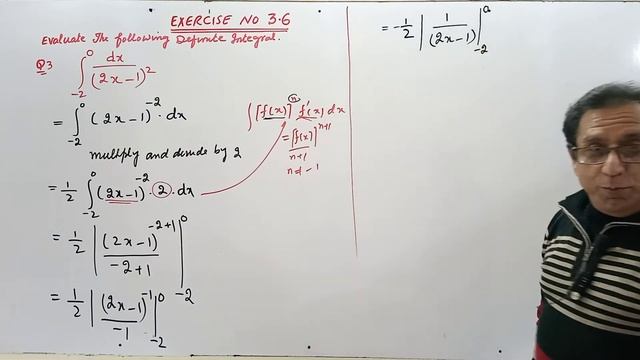 EXERCISE NO 3.6
Evaluate The following Definite Integral.
Q3 ∫₋₂⁰ dx/(2x-1)²
= ∫₋₂⁰ (2x-1)⁻²·dx
multiply and devide by 2
= 1/2 ∫₋₂⁰ (2x-1)⁻²·2·dx
= 1/2 |(2x-1)⁻²⁺¹/-2+1|₋₂⁰
= 1/2 |(2x-1)⁻¹/-1|₋₂⁰
∫[f(x)]ⁿ f'(x) dx
= [f(x)]ⁿ⁺¹/n+1
n≠-1
= -1/2 |1/(2x-1)|₋₂⁰